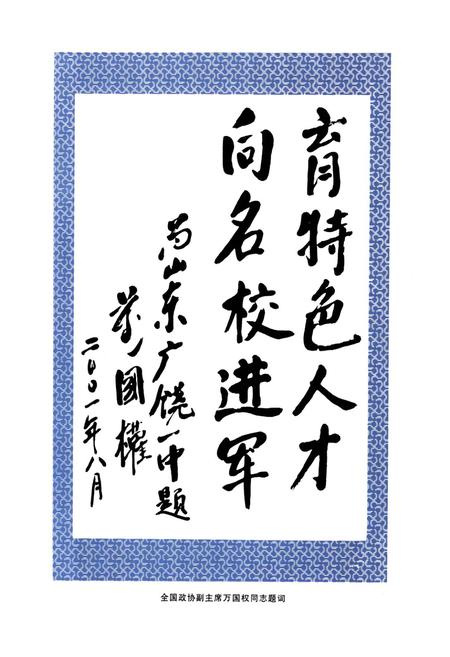 育特色人才
向名校进军
为山东广饶一中题
万国權
二〇〇一年八月
全国政协副主席万国权同志题词